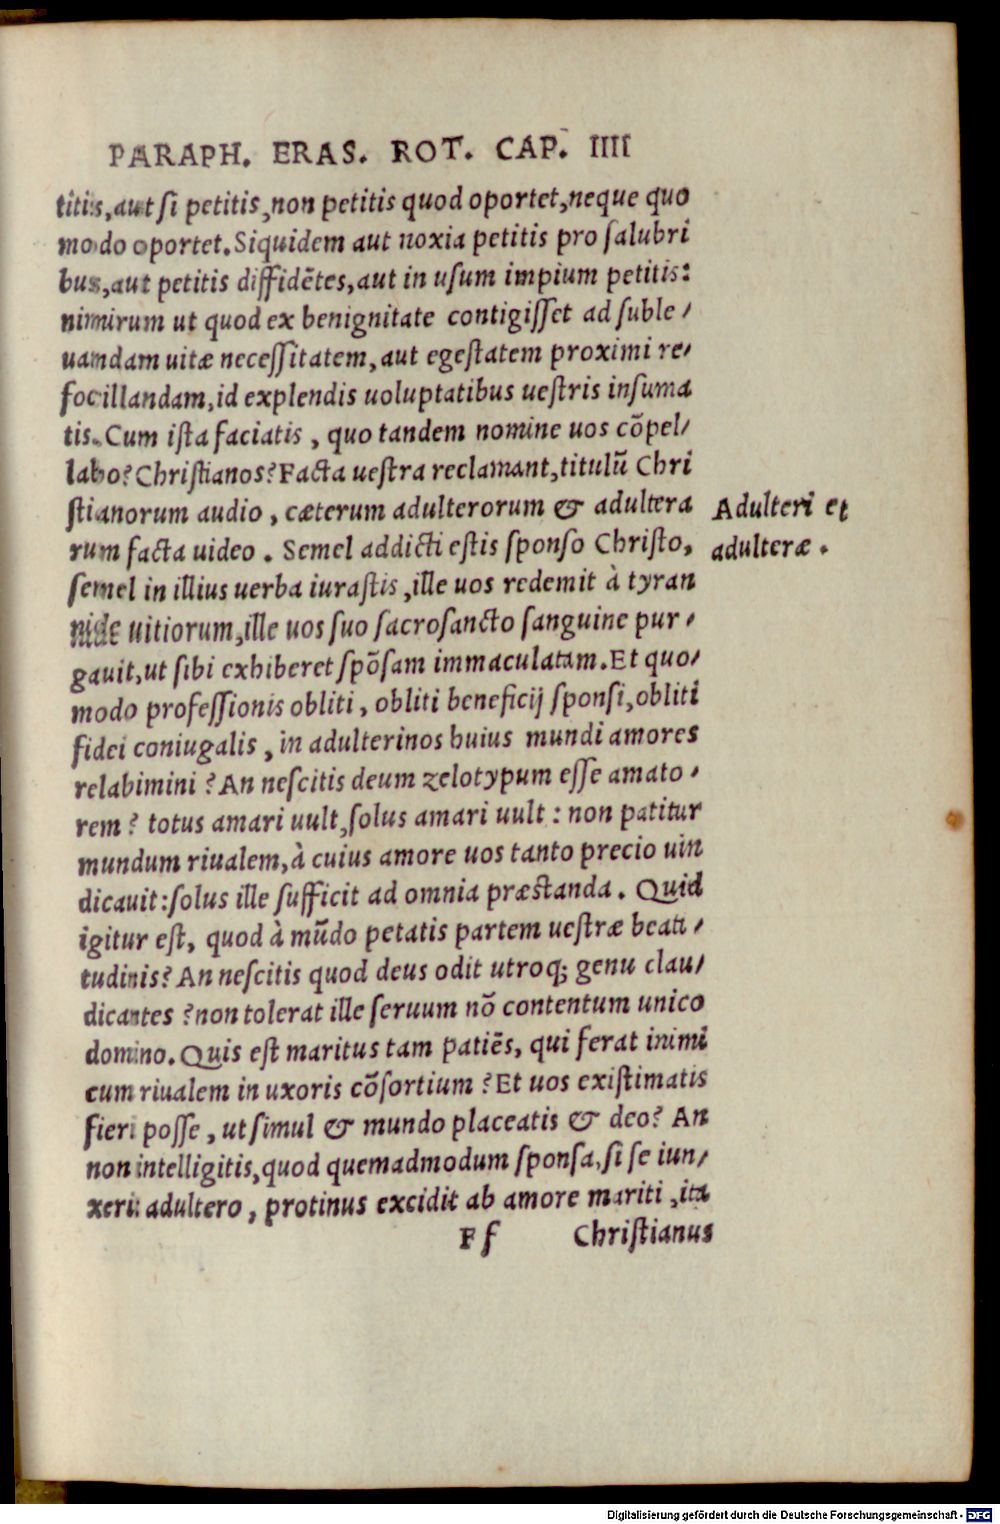 PARAPH. ERAS. ROT. CAP. IIII
titis, aut si petitis, non petitis quod oportet, neque quo
modo oportet. Siquidem aut noxia petitis pro salubri
bus, aut petitis diffidẽtes, aut in usum impium petitis:
nimirum ut quod ex benignitate contigisset ad suble/
uamdam uitæ necessitatem, aut egestatem proximi re/
focillandam, id explendis uoluptatibus uestris insuma
tis. Cum ista faciatis, quo tandem nomine uos cõpel/
labo? Christianos? Facta uestra reclamant, titulũ Chri
stianorum audio, cæterum adulterorum & adultera
rum facta uideo. Semel addicti estis sponso Christo,
semel in illius uerba iurastis, ille uos redemit à tyran
nide uitiorum, ille uos suo sacrosancto sanguine pur/
gauit, ut sibi exhiberet spõsam immaculatam. Et quo/
modo professionis obliti, obliti beneficij sponsi, obliti
fidei coniugalis, in adulterinos huius mundi amores
relabimini? An nescitis deum zelotypum esse amato/
rem? totus amari uult, solus amari uult: non patitur
mundum riualem, à cuius amore uos tanto precio uin
dicauit: solus ille sufficit ad omnia præstanda. Quid
igitur est, quod à mũdo petatis partem uestræ beati/
tudinis? An nescitis quod deus odit utroq; genu clau/
dicantes? non tolerat ille seruum nõ contentum unico
domino. Quis est maritus tam patiẽs, qui ferat inimi
cum riualem in uxoris cõsortium? Et uos existimatis
fieri posse, ut simul & mundo placeatis & deo? An
non intelligitis, quod quemadmodum sponsa, si se iun/
xerit adultero, protinus excidit ab amore mariti, ita
Ff Christianus
Adulteri et
adulteræ.
Digitalisierung gefördert durch die Deutsche Forschungsgemeinschaft - DFG